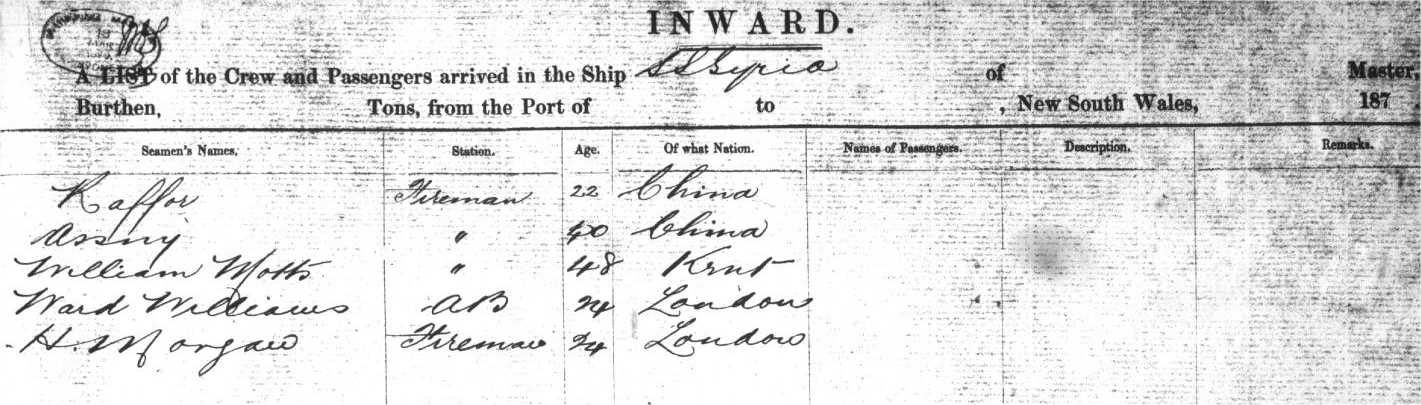 INWARD.
A LIST of the Crew and Passengers arrived in the Ship SS Syria of Master,
Burthen, Tons, from the Port of to , New South Wales, 187
Seamen's Names. Station. Age. Of what Nation. Names of Passengers. Description. Remarks.
Kaffor Fireman 22 China
Assny " 40 China
William Motts " 48 Kent
Ward Williams AB 24 London
H. Morgan Fireman 24 London